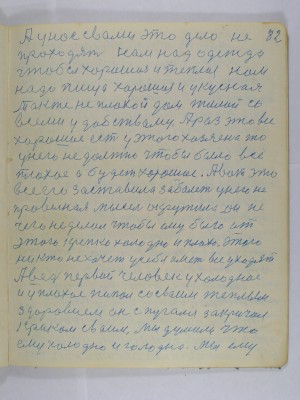 82
А у нас свами это дело не
проходят нам над одежда
чтобы хорошая и теплая нам
надо пища хорошая и укусная
также не плохой дом жилой со
всеми удобствами. А раз это все
хорошая ест у этого хозяена то
у него не должно чтобы было все
плохое а будет хорошае. А вот это
всего заставила заболет у него не
правелная мысел окружила он не
чего не делил чтобы ему было от
этого крепко холодно и плохо. Этого
ни кто не хочет у себя имет все уходят
А вед первой человек у холодное
и у плохое попал со сваим теплым
здоровием он с пугался закричал
криком сваим, мы думали что
ему холодно и голодно. Мы ему